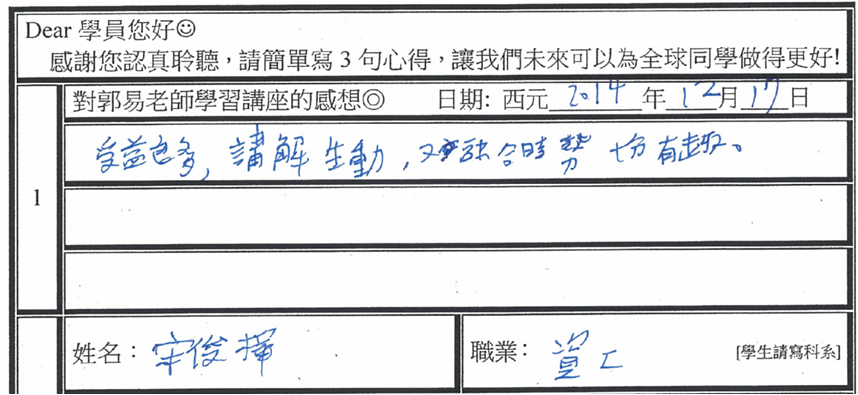 Dear 學員您好☺
感謝您認真聆聽，請簡單寫 3 句心得，讓我們未來可以為全球同學做得更好!
對郭易老師學習講座的感想◎ 日期: 西元 2014 年 12 月 17 日
1
受益良多，講解生動，又融合時勢 十份有趣。
姓名： 俊 職業： 資工 [學生請寫科系]